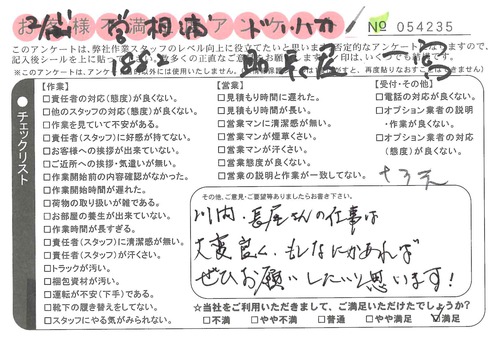 お客様不満足アンケート
№ 054235
このアンケートは、弊社作業スタッフのレベル向上に役立てたいと思います。否定的なアンケートとなりますので、
記入後シールを上に貼って下さい。数多くの正直なご意見お願いします。
※このアンケートは、
【作業】
□責任者の対応(態度)が良くない。
□他のスタッフの対応(態度)が良くない。
□作業を見ていて不安がある。
□責任者(スタッフ)に好感が持てない。
□お客様への挨拶が出来ていない。
□ご近所への挨拶・気遣いが無い。
□作業開始前の内容確認がなかった。
□作業開始時間が遅れた。
□荷物の取り扱いが雑である。
□お部屋の養生が出来ていない。
□作業時間が長すぎる。
□責任者(スタッフ)に清潔感が無い。
□責任者(スタッフ)が汗くさい。
□トラックが汚い。
□梱包資材が汚い。
□運転が不安(下手)である。
□靴下の履き替えをしてない。
□スタッフにやる気がみられない。
チェックリスト
【営業】
□見積もり時間に遅れた。
□見積もり時間が長い。
□営業マンに清潔感が無い。
□営業マンが煙草くさい。
□営業マンが汗くさい。
□営業態度が良くない。
□営業の説明と作業が一致してない。
【受付・その他】
□電話の対応が良くない。
□オプション業者の説明
・作業が良くない。
□オプション業者の対応
(態度)が良くない。
その他、ご意見・ご要望等ありましたらお書き下さい。
川内・長尾さんの仕事は
大変良く、もしなにかあれば
ぜひお願いしたいと思います!
☆当社をご利用いただきまして、ご満足いただけたでしょうか?
□不満 □やや不満 □普通 □やや満足 ☑満足